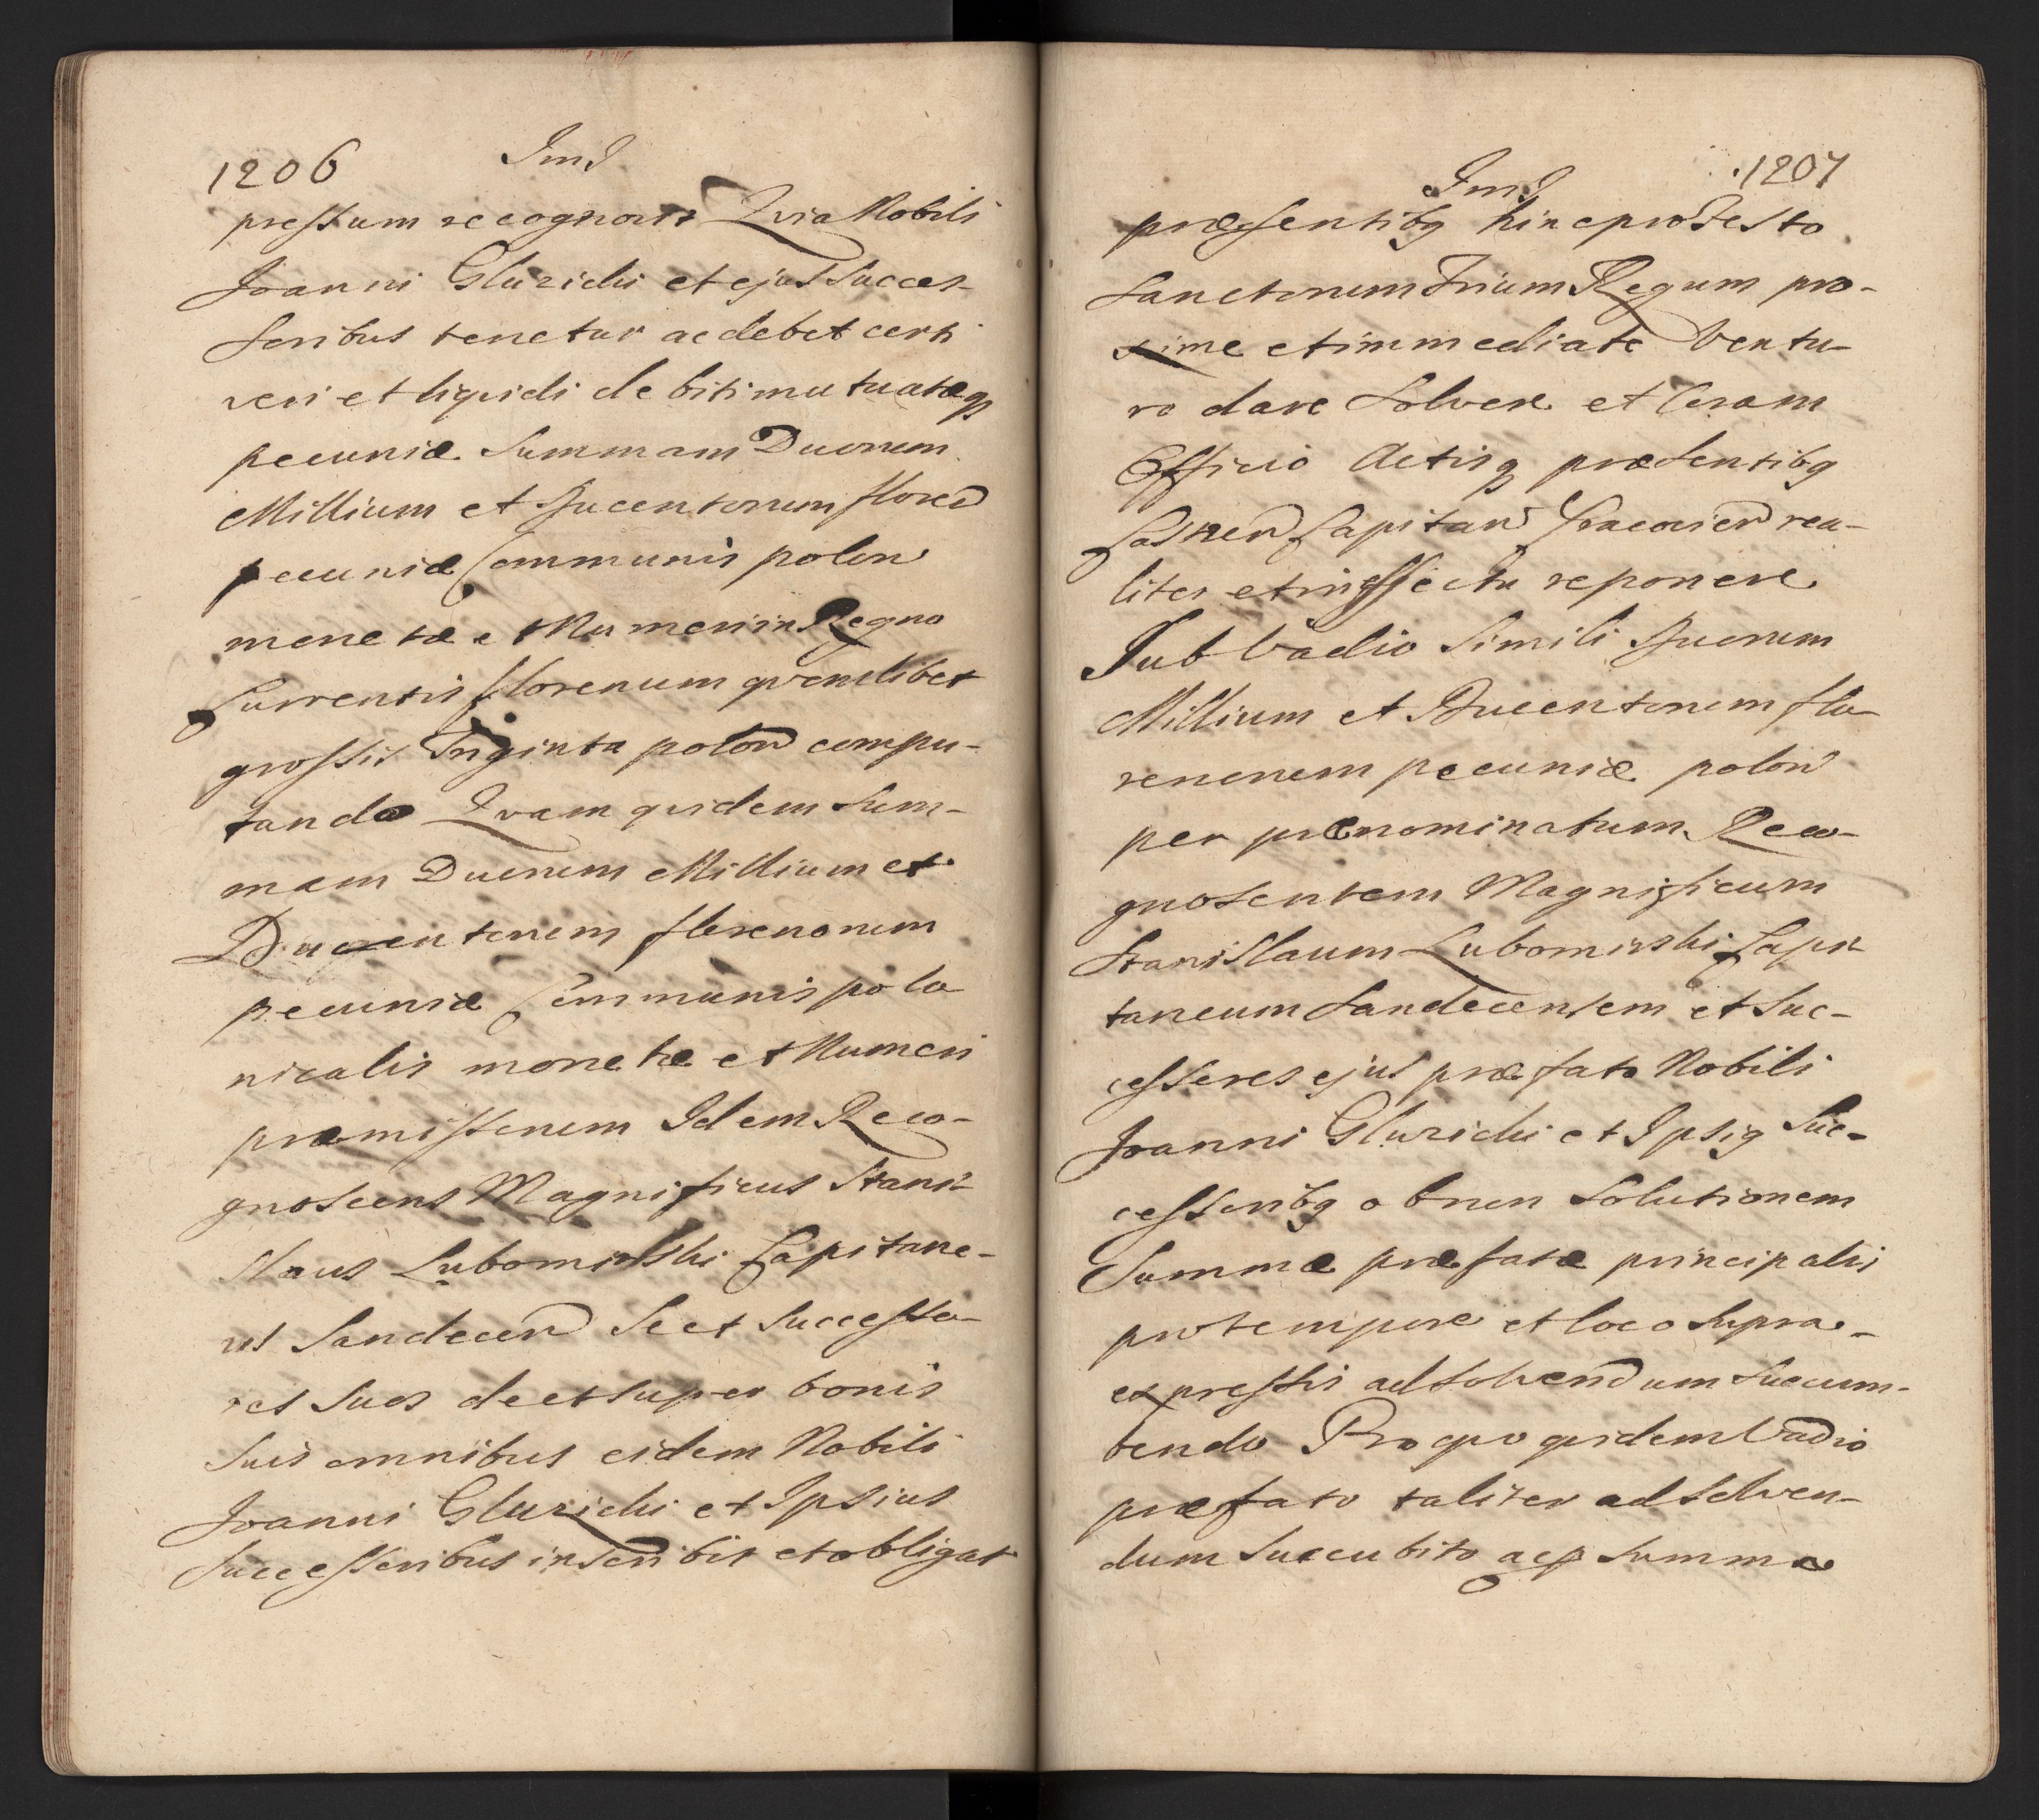 1206 Ind
pressum recognovit Quia Nobili
Joanni Gluzicki et ejus Succes-
soribus tenetur ac debet certi
veri et liqvidi debiti mutuatæq
pecuniæ Summam Duorum
Millium et Ducentorum floren
pecuniæ Communis polon
monetæ et Numeri in Regno
Currentis florenum qvemlibet
grossis Triginta polon compu-
tando Qvam qvidem Sum-
mam Duorum Millium et
Ducentorum florenorum
pecuniæ Communis polo
nicalis monetæ et Numeri
præmissorum Idem Reco-
gnoscens Magnificus Stani-
slaus Lubomirski Capitane-
us Sandecen Se et Successo-
res Suos de et super bonis
Suis omnibus eidem Nobili
Joanni Gluzicki et Ipsius
Successoribus inscribit et obligat
Ind 1207
præsentibq hinc pro Festo
Sanctorum Trium Regum pro-
xime et immediate ventu-
ro dare Solvere et Coram
Officio Actisq præsentibq
Castren Capitan Cracovien rea-
liter et in effectu reponere
Sub Vadio Simili Duorum
Millium et Ducentorum flo-
renorum pecuniæ polon
per prænominatum Reco-
gnoscentem Magnificum
Stanislaum Lubomirski Capi-
taneum Sandecensem et Suc-
cessores ejus præfato Nobili
Joanni Gluzicki et Ipsiq Suc-
cessoribq o bnen Solutionem
Summæ præfatæ principalis
pro tempore et loco Supra-
expressis ad Solvendum Succum-
bendo Pro qvo qvidem Vadio
præfato taliter ad Solven-
dum Succubito acp Summa